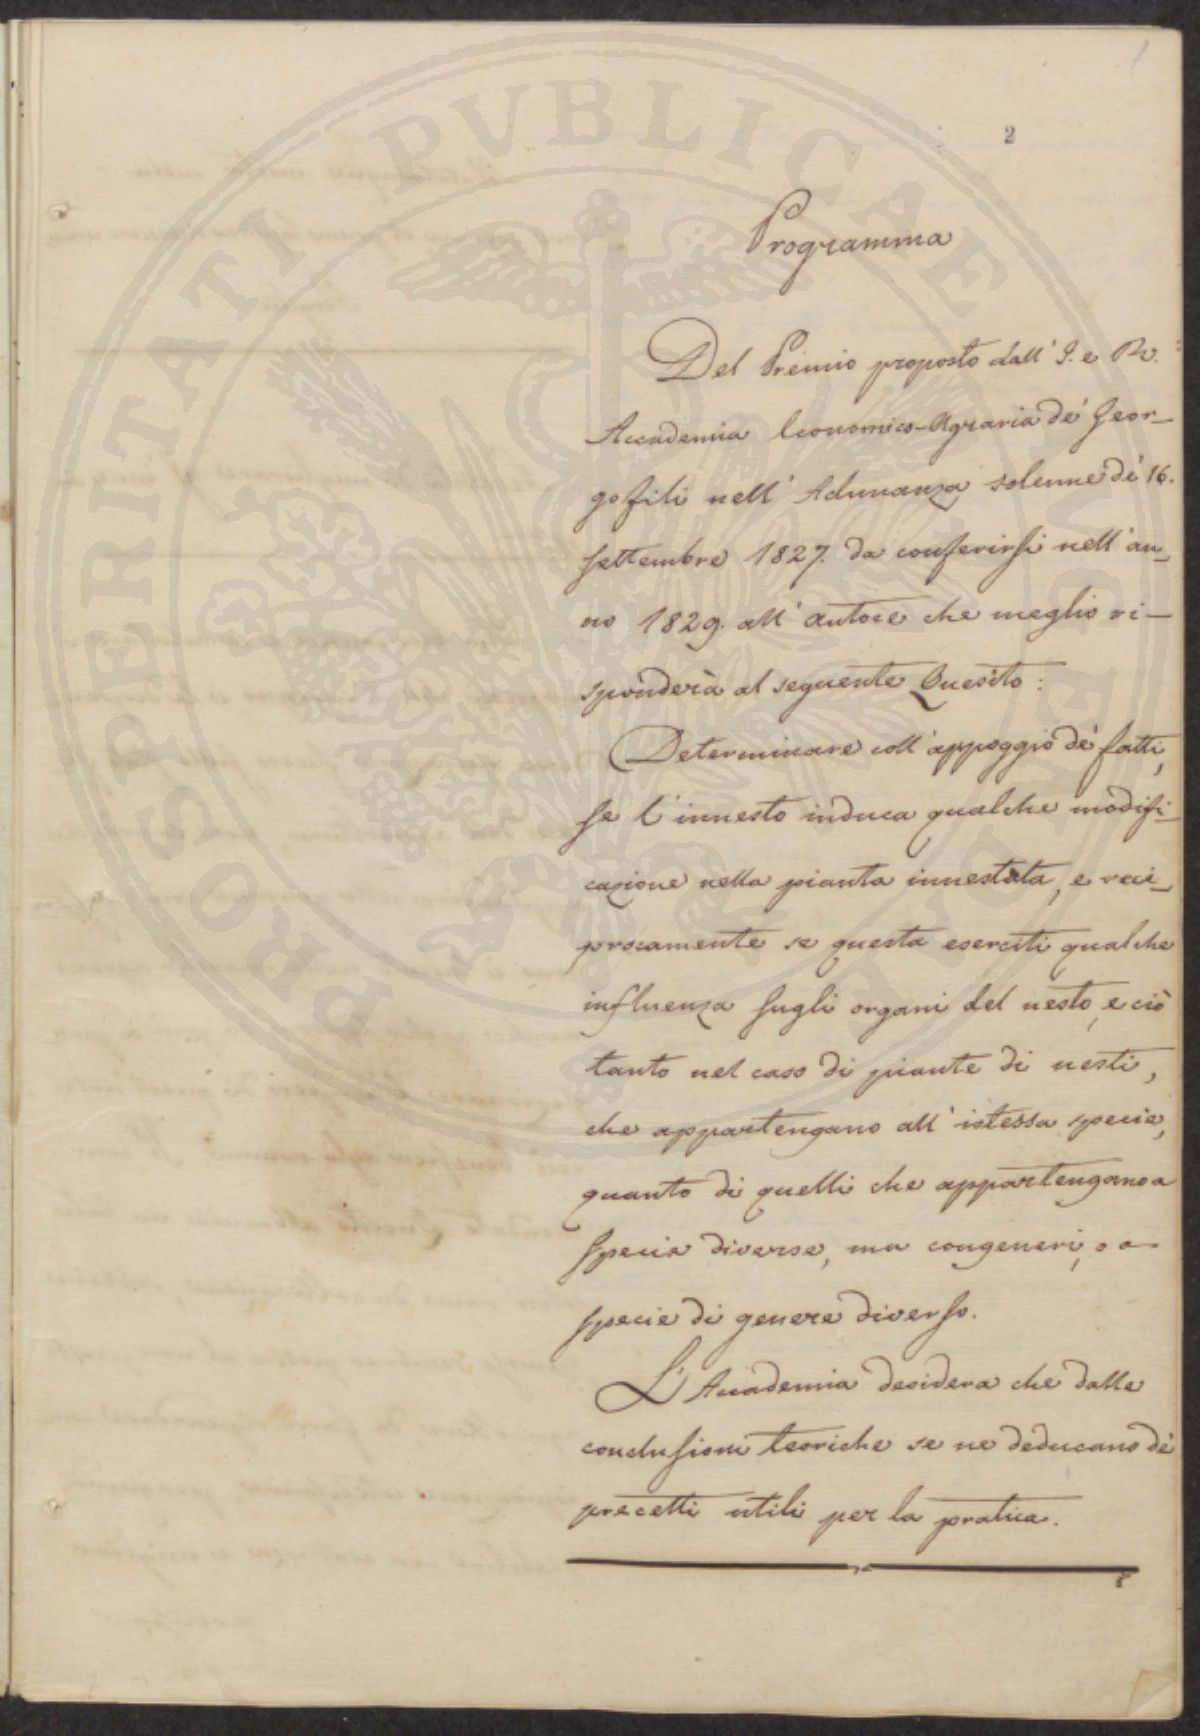 1
2
Programma
Del Premio proposto dall' I. e R.
Accademia Economico-Agraria de' Geor-
gofili nell' Adunanza solenne de' 16.
Settembre 1827. da conferirsi nell' an-
no 1829. all' autore che meglio ri-
sponderà al seguente Quesito:
Determinare coll' appoggio de' fatti,
se l' innesto induca qualche modifi-
cazione nella pianta innestata, e reci-
procamente se questa eserciti qualche
influenza sugli organi del nesto, e ciò
tanto nel caso di piante di nesti,
che appartengano all' istessa specie,
quanto di quelli che appartengano a
specie diverse, ma congeneri, o a
specie di genere diverso.
L' Accademia desidera che dalle
conclusioni teoriche se ne deducano de'
precetti utili per la pratica.
PROSPERITATI PVBLICAE AVGENDAE